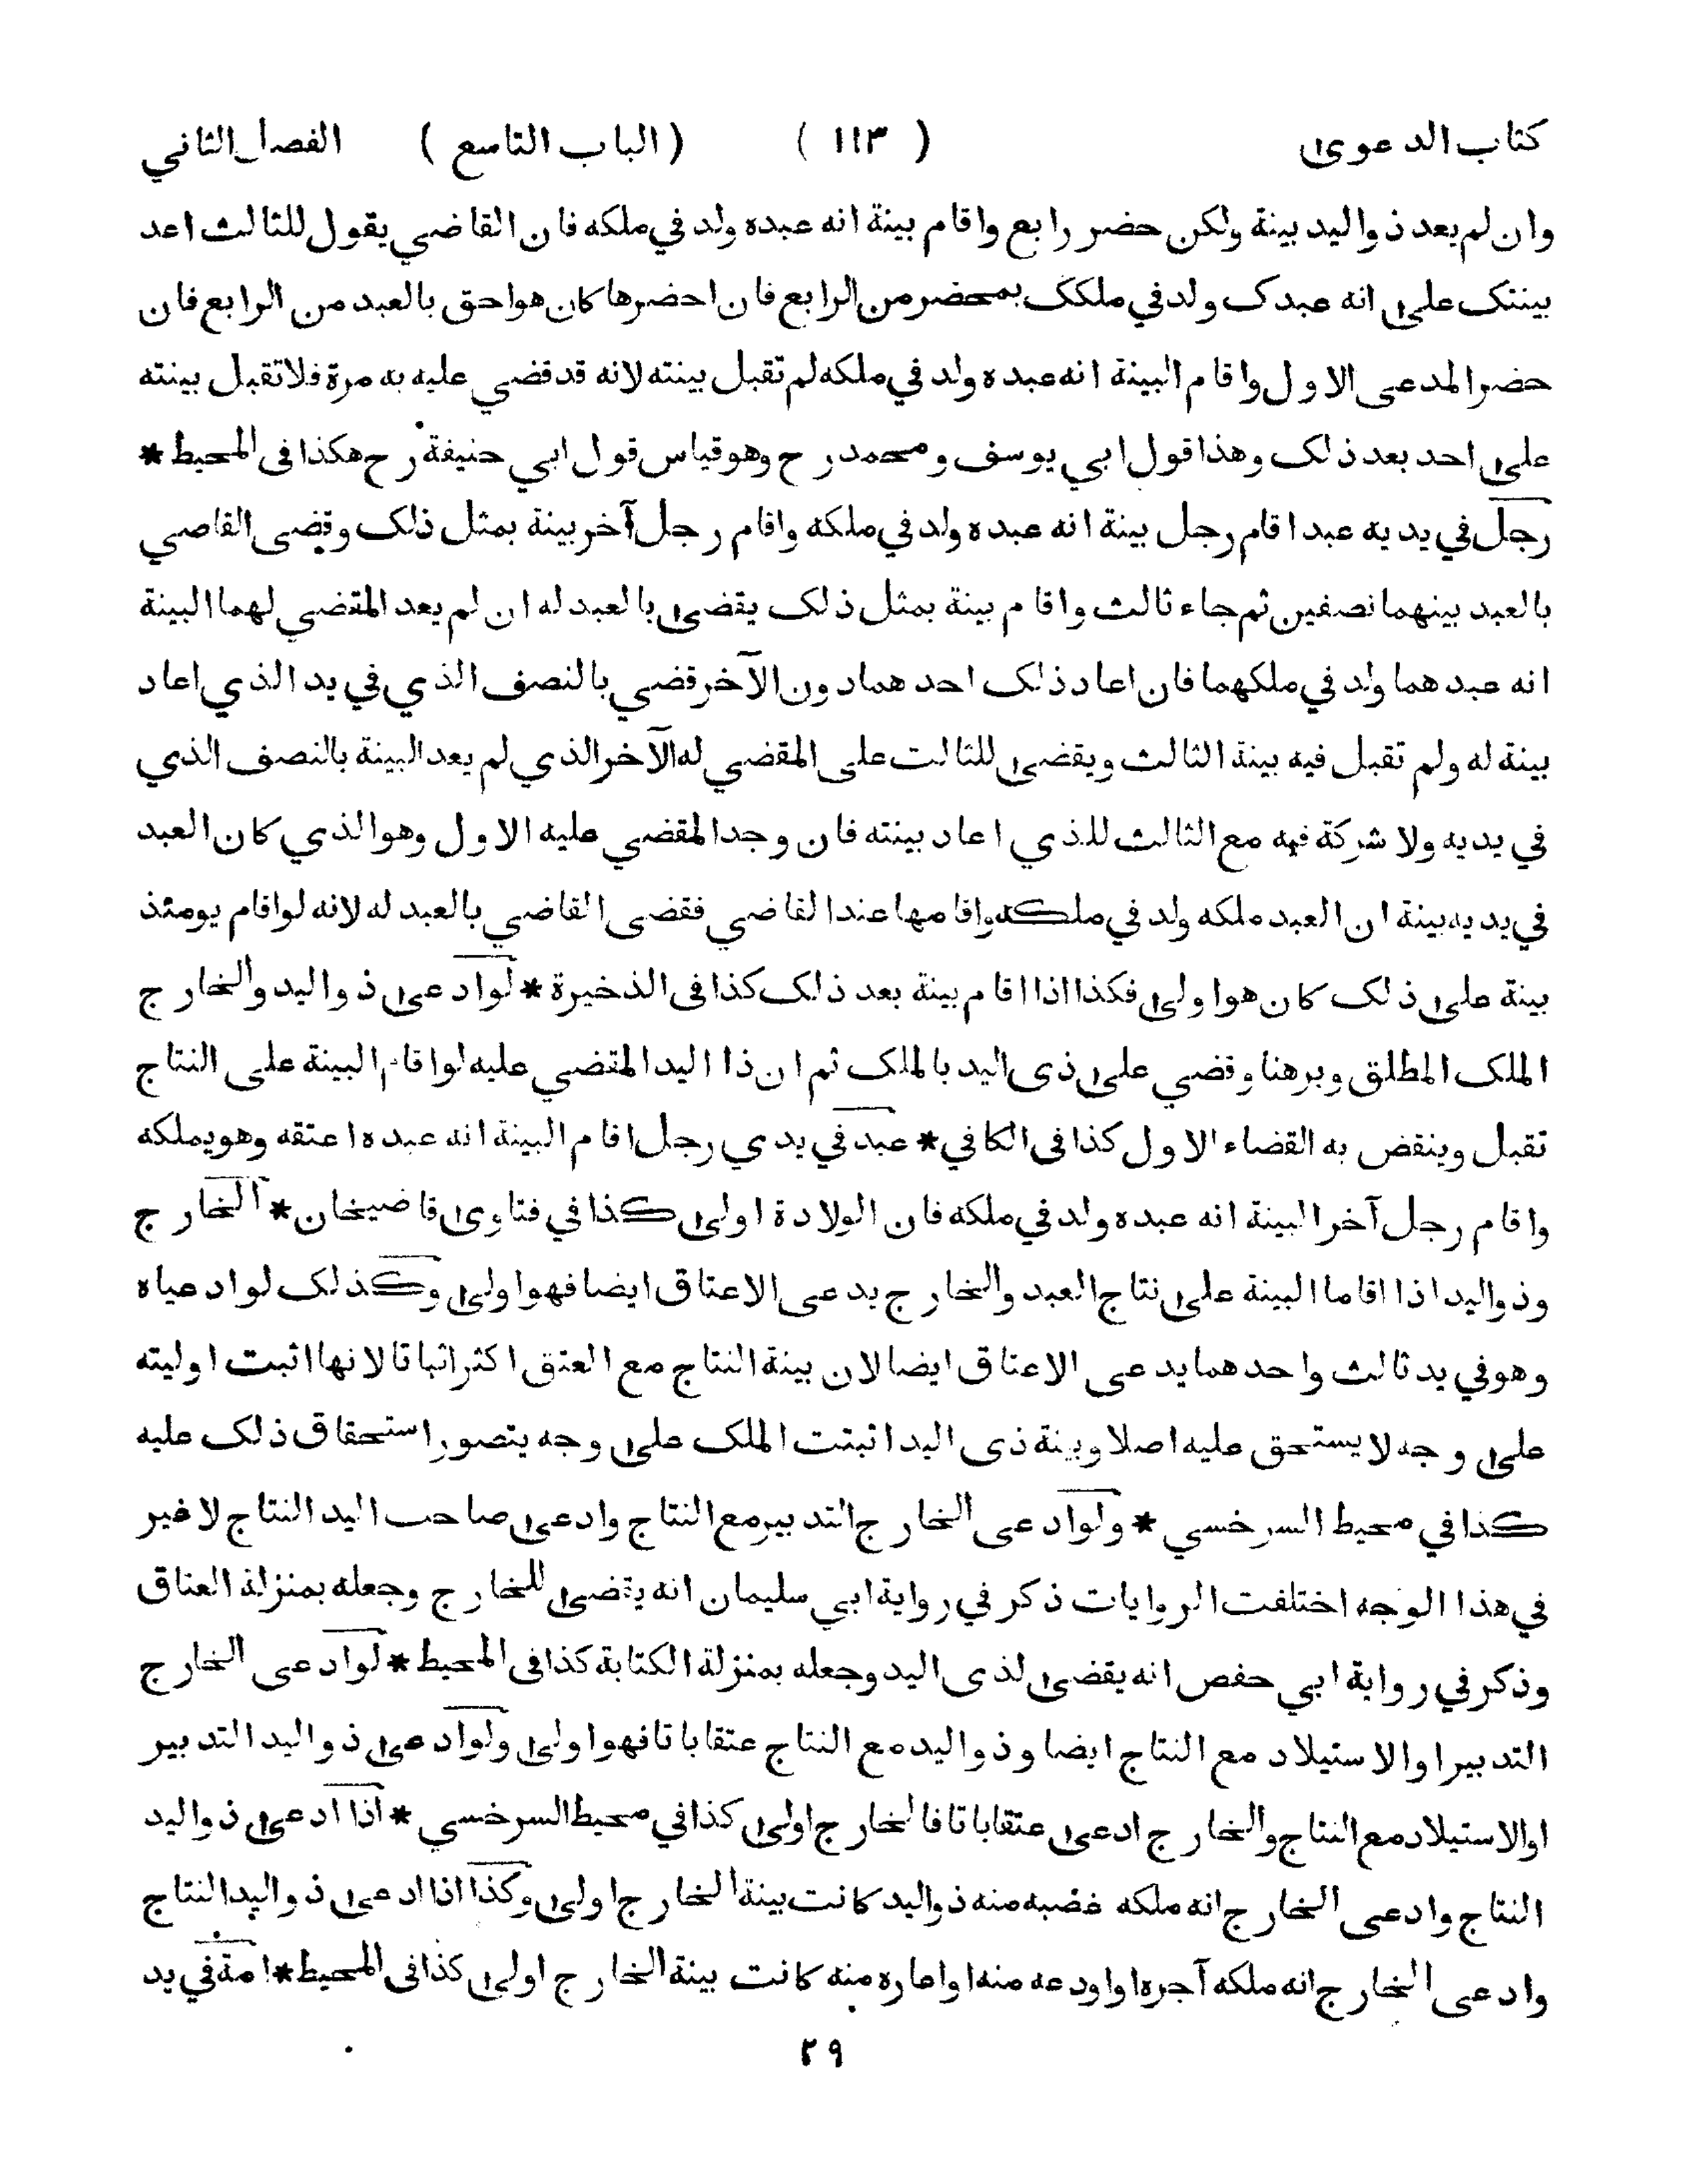 كتاب الدعوى ( ١١٣ ) ( الباب التاسع ) الفصل الثاني
وان لم يعد ذواليد بينة ولكن حضر رابع واقام بينة انه عبده ولد في ملكه فان القاضي يقول للثالث اعد
بينتك على انه عبدك ولد في ملكك بمحضر من الرابع فان احضرها كان هو احق بالعبد من الرابع فان
حضر المدعى الاول واقام البينة انه عبده ولد في ملكه لم تقبل بينته لانه قد قضي عليه به مرة فلا تقبل بينته
على احد بعد ذلك وهذا قول ابي يوسف ومحمد رح وهو قياس قول ابي حنيفة رح هكذا فى المحيط *
رجل في يديه عبد اقام رجل بينة انه عبده ولد في ملكه واقام رجل آخر بينة بمثل ذلك وقضى القاضي
بالعبد بينهما نصفين ثم جاء ثالث واقام بينة بمثل ذلك يقضى بالعبد له ان لم يعد المقضي لهما البينة
انه عبدهما ولد في ملكهما فان اعاد ذلك احدهما دون الآخر قضي بالنصف الذي في يد الذي اعاد
بينة له ولم تقبل فيه بينة الثالث ويقضى للثالث على المقضي له الآخر الذي لم يعد البينة بالنصف الذي
في يديه ولا شركة فيه مع الثالث للذي اعاد بينته فان وجد المقضي عليه الاول وهو الذي كان العبد
في يديه بينة ان العبد ملكه ولد في ملكه واقامها عند القاضي فقضى القاضي بالعبد له لانه لو اقام يومئذ
بينة على ذلك كان هو اولى فكذا اذا اقام بينة بعد ذلك كذا فى الذخيرة * لو ادعى ذواليد والخارج
الملك المطلق وبرهنا وقضي على ذى اليد بالملك ثم ان ذا اليد المقضي عليه لو اقام البينة على النتاج
تقبل وينقض به القضاء الاول كذا فى الكافي * عبد في يدي رجل اقام البينة انه عبده اعتقه وهو يملكه
واقام رجل آخر البينة انه عبده ولد في ملكه فان الولادة اولى كذا في فتاوى قاضيخان * الخارج
وذواليد اذا اقاما البينة على نتاج العبد والخارج يدعى الاعتاق ايضا فهو اولى وكذلك لو ادعياه
وهو في يد ثالث واحدهما يدعى الاعتاق ايضا لان بينة النتاج مع العتق اكثر اثباتا لانها اثبت اوليته
على وجه لا يستحق عليه اصلا وبينة ذى اليد اثبتت الملك على وجه يتصور استحقاق ذلك عليه
كذا في محيط السرخسي * ولو ادعى الخارج التدبير مع النتاج وادعى صاحب اليد النتاج لا غير
في هذا الوجه اختلفت الروايات ذكر في رواية ابي سليمان انه يقضى للخارج وجعله بمنزلة العتاق
وذكر في رواية ابي حفص انه يقضى لذى اليد وجعله بمنزلة الكتابة كذا فى المحيط * لو ادعى الخارج
التدبير او الاستيلاد مع النتاج ايضا وذواليد مع النتاج عتقا باتا فهو اولى ولو ادعى ذواليد التدبير
او الاستيلاد مع النتاج والخارج ادعى عتقا باتا فالخارج اولى كذا في محيط السرخسي * اذا ادعى ذواليد
النتاج وادعى الخارج انه ملكه غصبه منه ذواليد كانت بينة الخارج اولى وكذا اذا ادعى ذواليد النتاج
وادعى الخارج انه ملكه آجره او اودعه منه او اعاره منه كانت بينة الخارج اولى كذا فى المحيط * امة في يد
٢٩